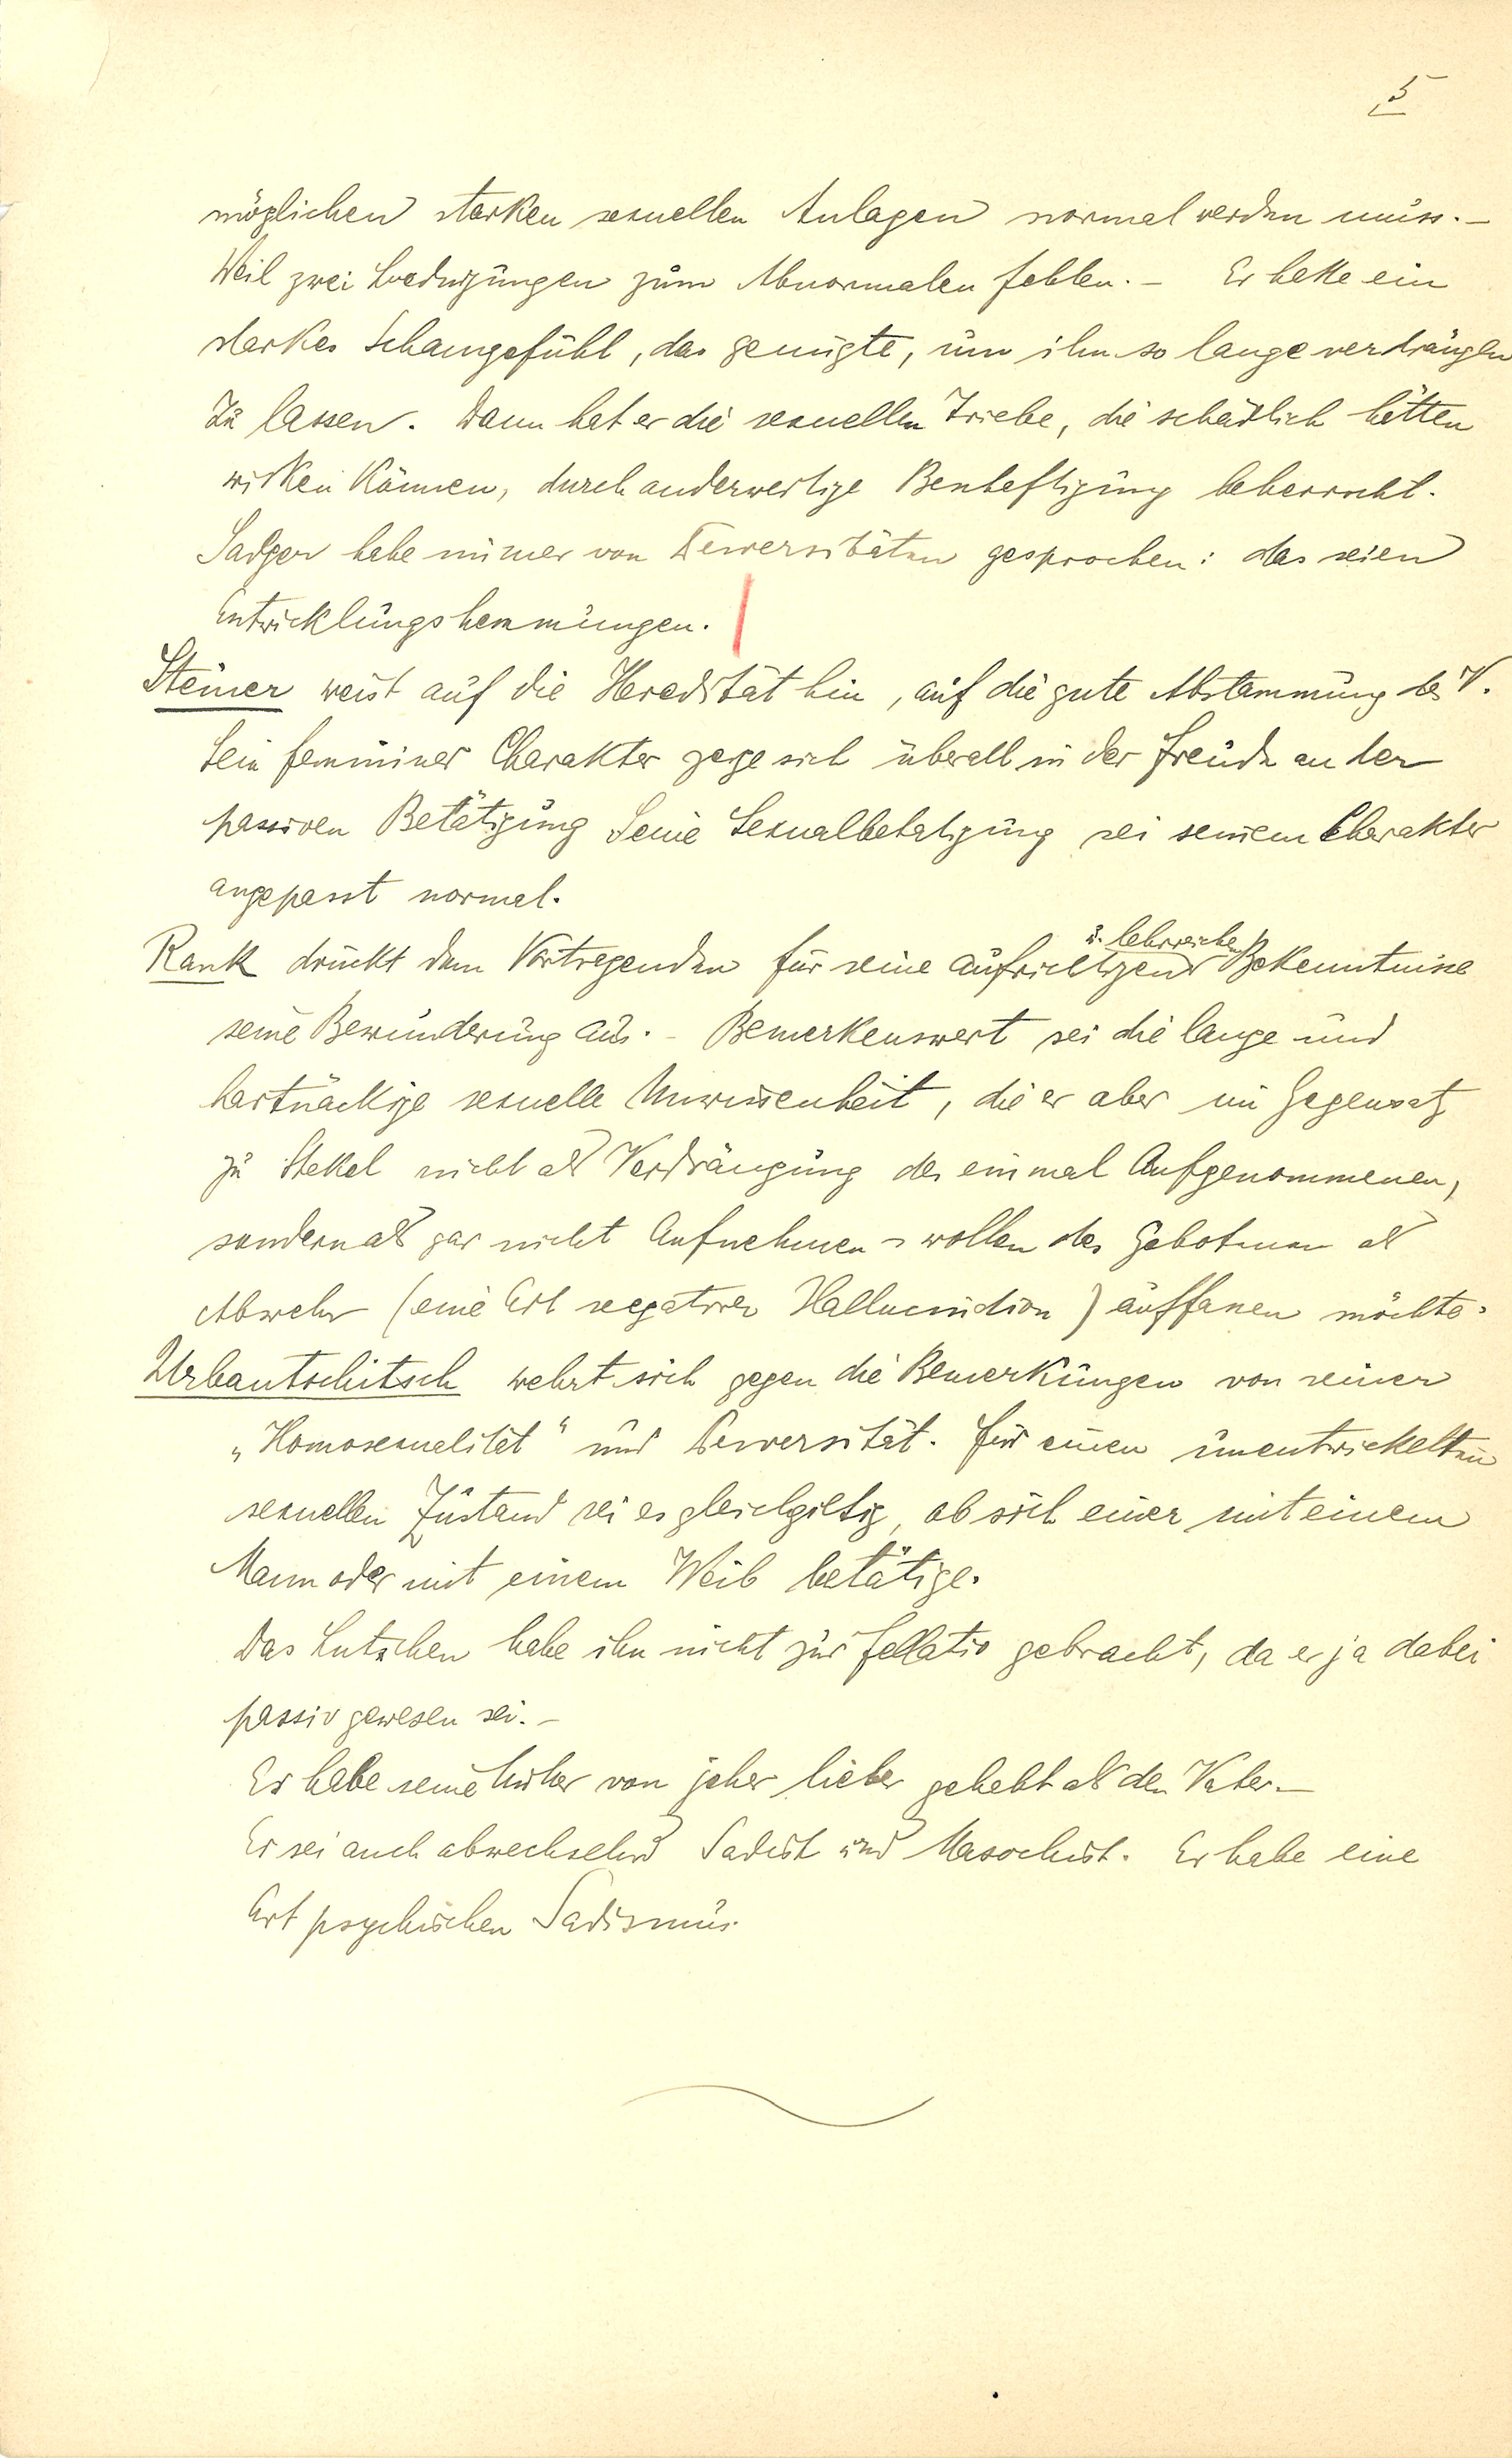 5
möglichen starken sexuellen Anlagen normal werden muss. –
Weil zwei Bedingungen zum Abnormalen fehlen. – Er hatte ein
starkes Schamgefühl, das genügte, um ihn so lange verdrängen
zu lassen. Dann hat er die sexuellen Triebe, die schädlich hätten
wirken können, durch anderweitige Beschäftigung beherrscht.
Sadger habe immer von Perversitäten gesprochen: das seien
Entwicklungshemmungen.
Steiner weist auf die Heredität hin, auf die gute Abstammung des V.
Sein femininer Charakter zeige sich überall in der Freude an der
passiven Betätigung Seine Sexualbetatigung sei seinem Charakter
angepasst normal.
u. lehrreichen
Rank drückt dem Vortragenden für seine aufrichtigen Bekenntnisse
seine Bewunderung aus. – Bemerkenswert sei die lange und
hartnäckige sexuelle Unwissenheit, die er aber im Gegensatz
zu Stekel nicht als Verdrängung des einmal Aufgenommenen,
sondern als gar nicht Aufnehmen-wollen des Gebotenen als
Abwehr (eine Art negativer Hallucination) auffassen möchte.
Urbantschitsch wehrt sich gegen die Bemerkungen von seiner
„Homosexualität“ und Perversität. Für einen unentwickelten
sexuellen Zustand sei es gleichgiltig, ob sich einer mit einem
Mann oder mit einem Weib betätige.
Das Lutschen habe ihn nicht zur Fellatio gebracht, da er ja dabei
passiv gewesen sei. –
Er habe seine Mutter von jeher lieber gehabt als den Vater. –
Er sei auch abwechselnd Sadist und Masochist. Er habe eine
Art psychischen Sadismus.